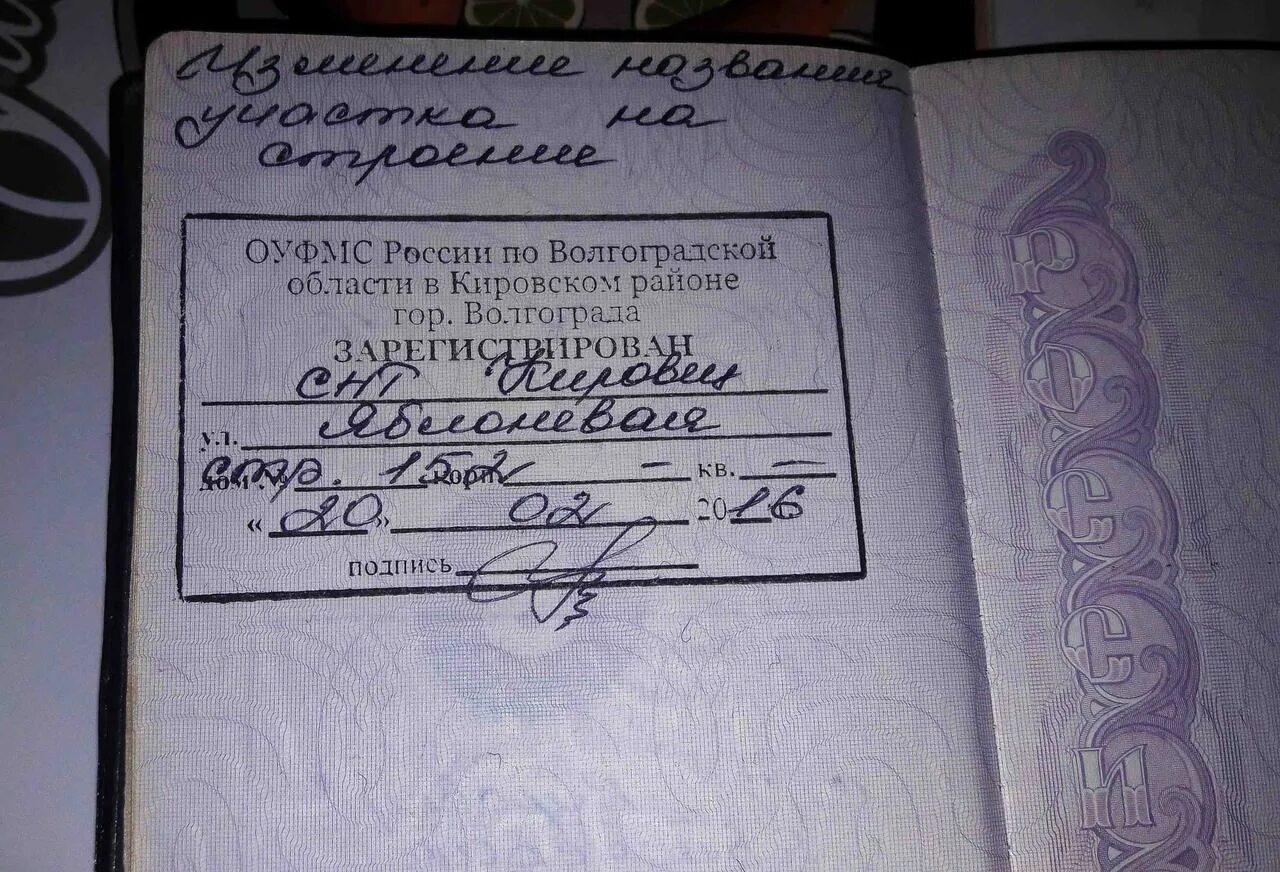 Изменение названия
участка на
строение
ОУФМС России по Волгоградской
области в Кировском районе
гор. Волгограда
ЗАРЕГИСТРИРОВАН
СНТ Кировец
ул. Яблоневая
стр. 152 корп. – кв. –
« 20 » 02 2016
подпись
РОССИ